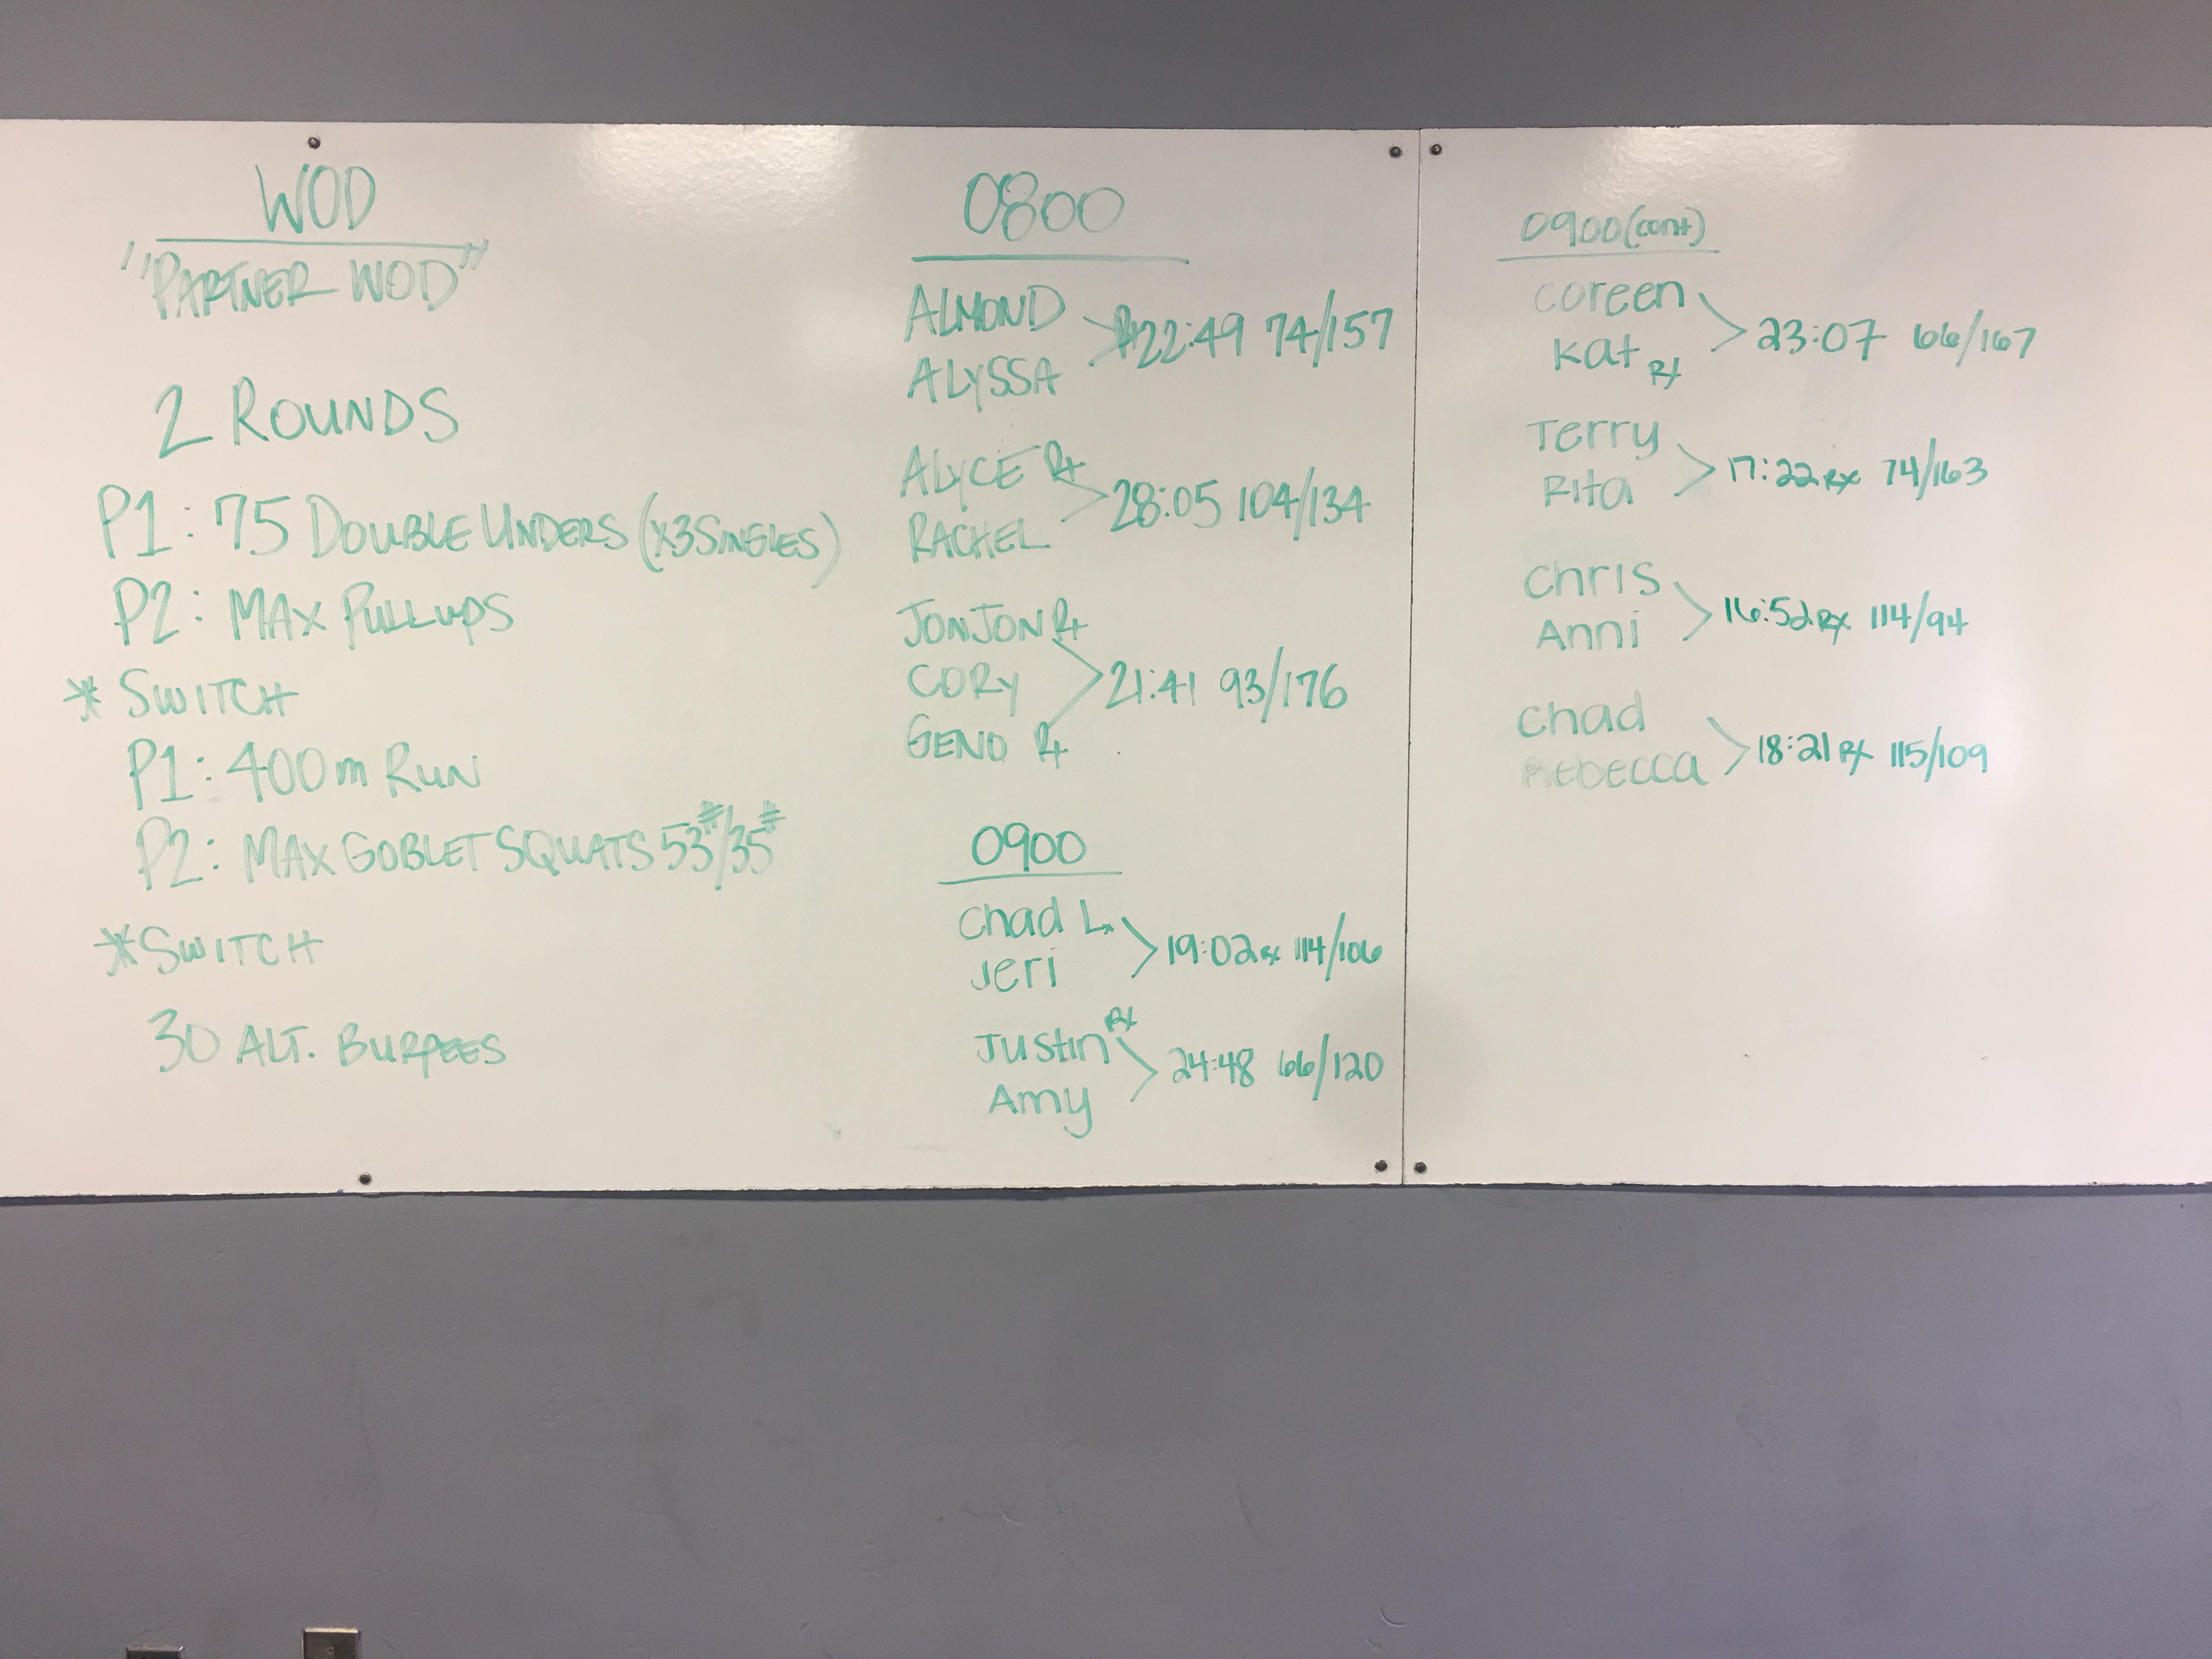 WOD
"PARTNER WOD"
2 ROUNDS
P1: 75 DOUBLE UNDERS (x3 SINGLES)
P2: MAX PULLUPS
* SWITCH
P1: 400m RUN
P2: MAX GOBLET SQUATS 53#/35#
* SWITCH
30 ALT. BURPEES
0800
ALMOND
ALYSSA
Rx 22:49 74/157
ALYCE Rx
RACHEL
28:05 104/134
JONJON Rx
CORY
GENO Rx
21:41 93/176
0900
Chad L.
Jeri
19:02 Rx 114/106
Justin Rx
Amy
24:48 66/120
0900 (cont)
Coreen
Kat Rx
23:07 66/167
Terry
Rita
17:22 Rx 74/163
Chris
Anni
16:52 Rx 114/94
Chad
Rebecca
18:21 Rx 115/109